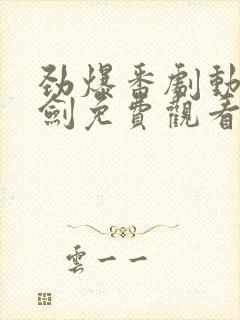 劲爆番劇動
劍免費觀看
雲一一